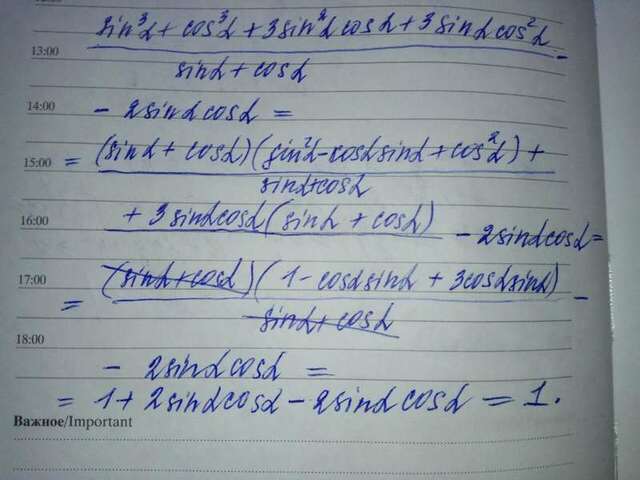 sin³α + cos³α + 3sin²α cosα + 3sinα cos²α -
13:00
sinα + cosα
14:00
- 2sinα cosα =
= (sinα + cosα)(sin²α - cosα sinα + cos²α) +
15:00
sinα+cosα
16:00
+ 3sinαcosα(sinα + cosα) - 2sinαcosα =
17:00
= (sinα+cosα)(1 - cosα sinα + 3cosα sinα) -
sinα+cosα
18:00
- 2sinα cosα =
= 1 + 2sinαcosα - 2sinα cosα = 1.
Важное/Important